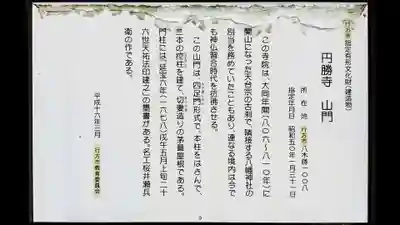 行方市指定有形文化財(建造物)
円勝寺 山門
所在地 行方市八木蒔一〇〇八
指定年月日 昭和五〇年一月三十一日
この寺院は、大同年間(八〇六~八一〇年)に
開山になった天台宗の古刹で、隣接する八幡神社の
別当を務めていたこともあり、連なる境内は今で
も神仏習合時代を彷彿させる。
この山門は、四足門形式で、本柱をはさんで、
二本の控柱を建て、切妻造りの茅葺屋根である。
門柱には、「延宝六年(一六七八)戊午五月上旬二十
六世天祐法印建之」の墨書がある。名工桜井瀬兵
衛の作である。
平成十六年三月 行方市教育委員会